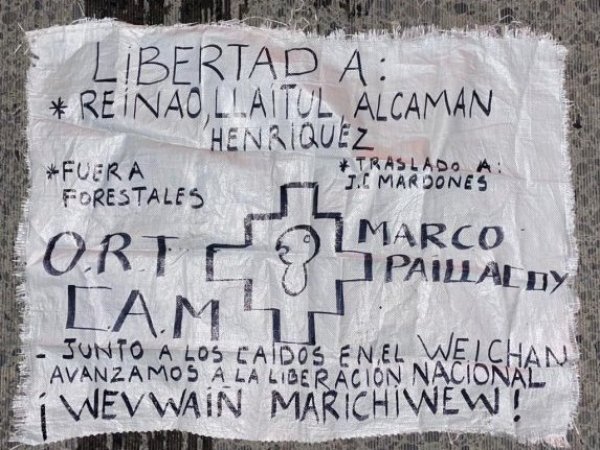 LIBERTAD A:
* REINAO, LLAITUL, ALCAMAN
HENRIQUEZ
*FUERA
FORESTALES
*TRASLADO A:
J.C MARDONES
O.R.T
C.A.M
MARCO
PAILLACOY
- JUNTO A LOS CAIDOS EN EL WEICHAN
AVANZAMOS A LA LIBERACIÓN NACIONAL
¡WEVWAIÑ MARICHIWEW!